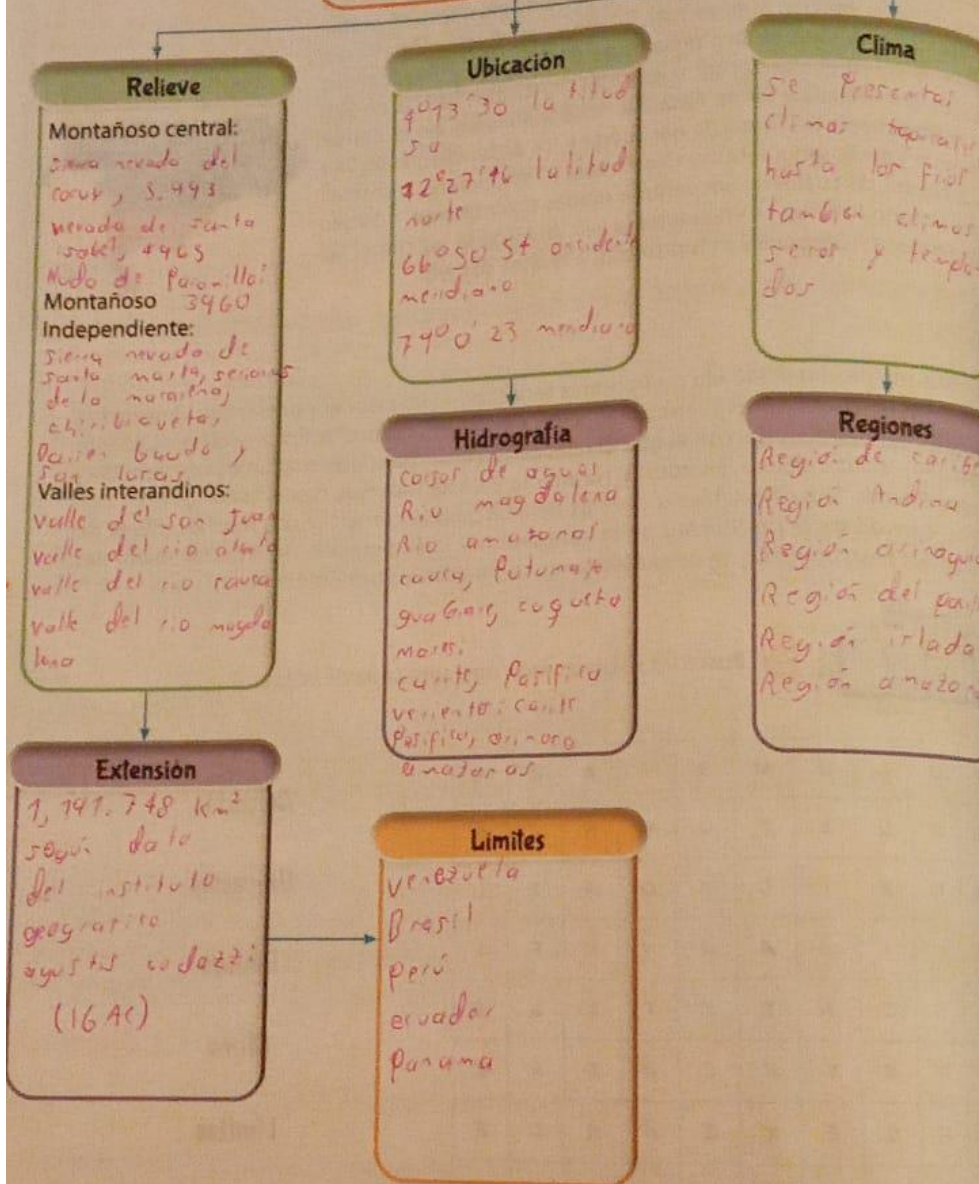 Relieve
Montañoso central:
sierra nevado del
cocuy, 5.493
nevado de santa
isabel, 4965
Nudo de Paramillo:
Montañoso 3960
Independiente:
sierra nevado de
santa marta, serranias
de la macarena,
chiribiquete,
Darien baudo y
san lucas
Valles interandinos:
valle del san Juan
valle del rio
valle del rio cauca
valle del rio magda
lena
Extensión
1,141.748 km²
según dato
del instituto
geografico
agustin codazzi
(16 AC)
Ubicación
4°13'30 latitud
su
12°27'46 latitud
norte
66°50 54 occidente
meridiano
79°0'23 meridiano
Hidrografía
de aguas
Rio magdalena
Rio amazonas
cauca, Putumayo
guaviare, caqueta
mares:
caribe, Pasifico
caribe
Pasifico, orinoco
amazonas
Límites
Venezuela
Brasil
Perú
ecuador
Panama
Clima
se Presentas
climas
hasta los frios
también climas
secos y templa
dos
Regiones
Región de carib
Región Andina
Región orinoqui
Región del paci
Región islada
Región amazon